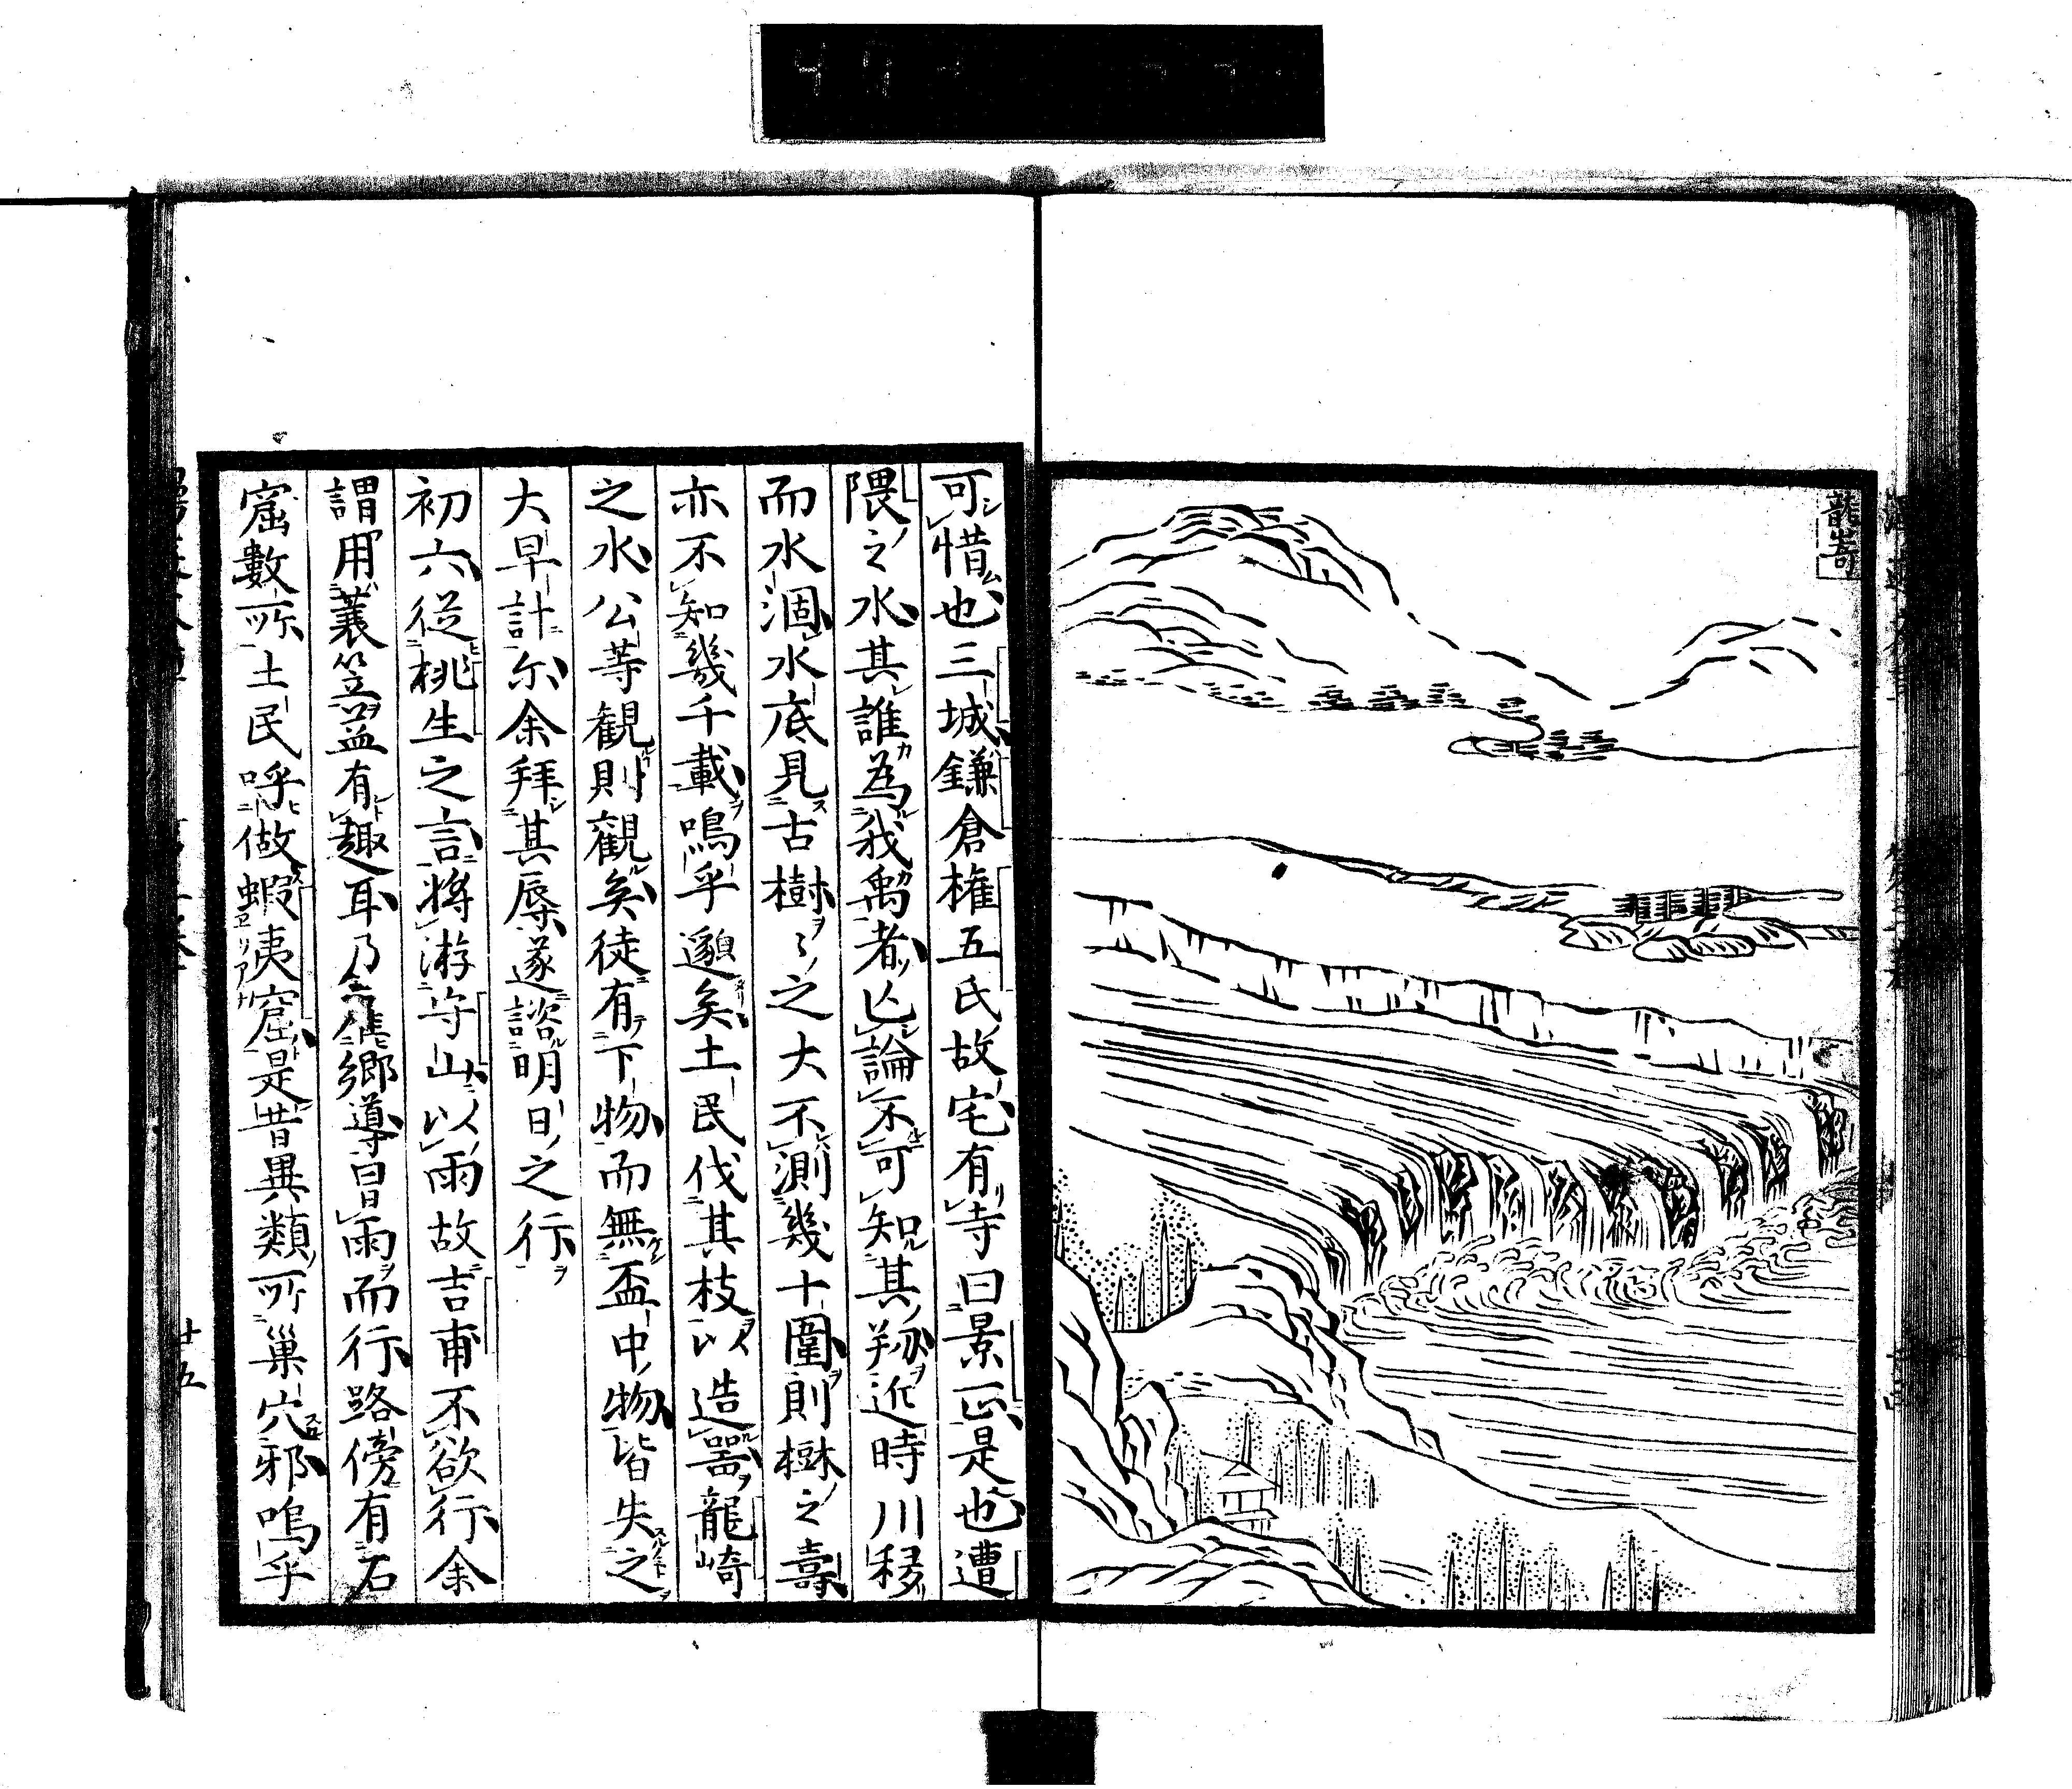 龍嵜
可惜也三城鎌倉権五氏故宅有寺曰景正是也遭
隈之水其誰為我禹者亡論不可知其刕近時川移
而水涸水底見古樹々之大不測幾十圍則樹之壽
亦不知幾千載嗚乎邈矣土民伐其枝以造器龍崎
之水公等観則観矣徒有下物而無盃中物皆失之
大早計尓余拜其辱遂諮明日之行
初六從桃生之言將游寺山以雨故吉甫不欲行余
謂用蓑笠益有趣耳乃命僕郷導曰雨而行路傍有石
窟數所土民呼做蝦夷窟是昔異類所巣穴邪嗚乎
廿五